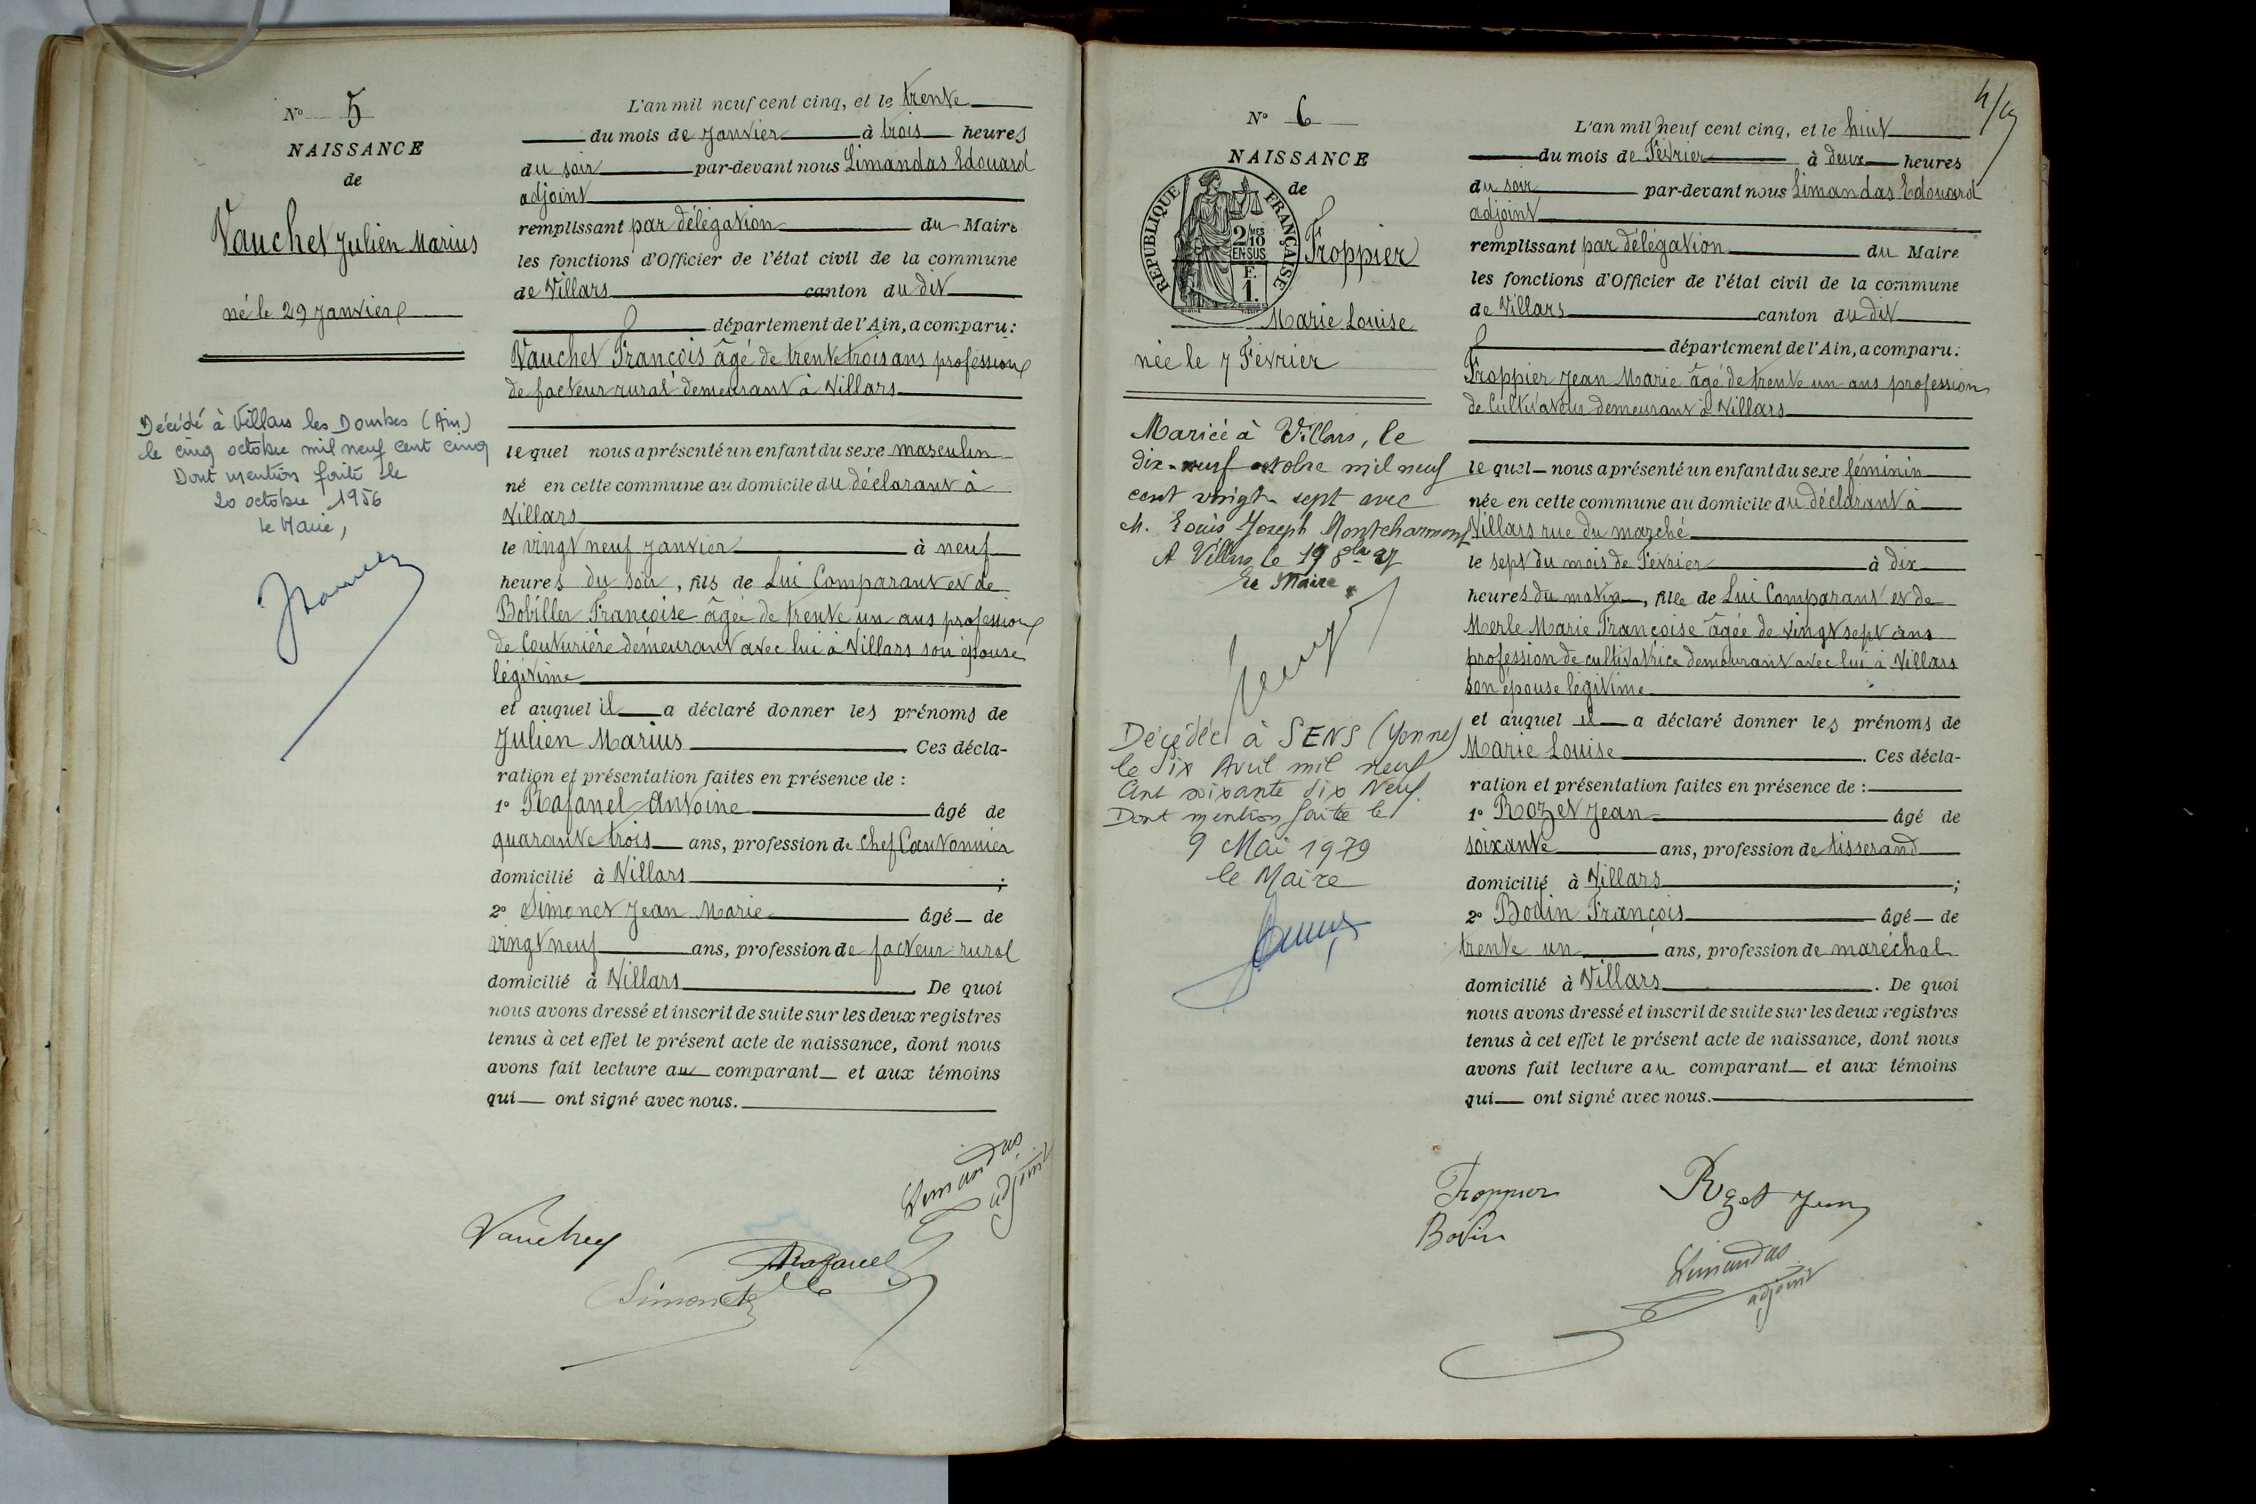 N° 5
NAISSANCE
de
Vauchet Julien Marius
né le 29 Janvier
Décédé à Villars les Dombes (Ain)
le cinq octobre mil neuf cent cinq
Dont mention faite le
20 octobre 1956
le Maire,
L'an mil neuf cent cinq, et le trente
du mois de Janvier à trois heures
du soir par-devant nous Limandas Edouard
adjoint
remplissant par délégation du Maire
les fonctions d'Officier de l'état civil de la commune
de Villars canton du dit
département de l'Ain, a comparu:
Vauchet François âgé de trente trois ans profession
de facteur rural demeurant à Villars
lequel nous a présenté un enfant du sexe masculin
né en cette commune au domicile du déclarant à
Villars
le vingt neuf Janvier à neuf
heures du soir, fils de Lui Comparant et de
Bobillet Françoise âgée de trente un ans profession
de Couturière demeurant avec lui à Villars son épouse
légitime
et auquel il a déclaré donner les prénoms de
Julien Marius Ces décla-
ration et présentation faites en présence de :
1° Rafanel Antoine âgé de
quarante trois ans, profession de chef Cantonnier
domicilié à Villars ;
2° Simonet Jean Marie âgé de
vingt neuf ans, profession de facteur rural
domicilié à Villars. De quoi
nous avons dressé et inscrit de suite sur les deux registres
tenus à cet effet le présent acte de naissance, dont nous
avons fait lecture au comparant et aux témoins
qui ont signé avec nous.
Limandas
adjoint
Vauchet
Rafanel
Simonet
4/
N° 6
NAISSANCE
de
RÉPUBLIQUE FRANÇAISE
2/10 MES
EN SUS
F.
1.
Troppier
Marie Louise
née le 7 Février
Mariée à Villars, le
dix-neuf octobre mil neuf
cent vingt sept avec
M. Louis Joseph Montcharmont
A Villars le 19 8bre 27
Le Maire
Décédée à SENS (Yonne)
le Six Avril mil neuf
Cent soixante dix Neuf.
Dont mention faite le
9 Mai 1979
le Maire
L'an mil neuf cent cinq, et le huit
du mois de Février à deux heures
du soir par-devant nous Limandas Edouard
adjoint
remplissant par délégation du Maire
les fonctions d'Officier de l'état civil de la commune
de Villars canton du dit
département de l'Ain, a comparu:
Troppier Jean Marie âgé de trente un ans profession
de Cultivateur demeurant à Villars
le quel nous a présenté un enfant du sexe féminin
née en cette commune au domicile du déclarant à
Villars rue du marché
le sept du mois de Février à dix
heures du matin, fille de Lui Comparant et de
Merle Marie Françoise âgée de vingt sept ans
profession de cultivatrice demeurant avec lui à Villars
son épouse légitime
et auquel il a déclaré donner les prénoms de
Marie Louise. Ces décla-
ration et présentation faites en présence de :
1° Rozet Jean âgé de
soixante ans, profession de tisserand
domicilié à Villars ;
2° Bodin François âgé de
trente un ans, profession de maréchal
domicilié à Villars. De quoi
nous avons dressé et inscrit de suite sur les deux registres
tenus à cet effet le présent acte de naissance, dont nous
avons fait lecture au comparant et aux témoins
qui ont signé avec nous.
Troppier
Rozet Jean
Bodin
Limandas
adjoint